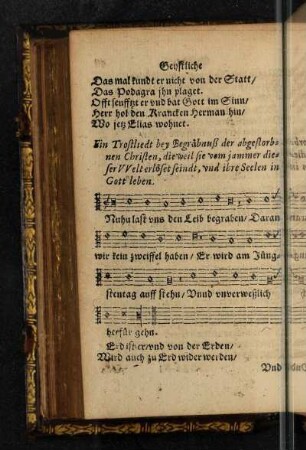 Geystliche
Das mal kundt er nicht von der Statt/
Das Podagra jhn plaget.
Offt seufftzt er vnd bat Gott im Sinn/
Herr hol den Krancken Herman hin/
Wo jetz Elias wohnet.
Ein Trostliedt bey Begräbnuß der abgestorbe-
nen Christen, die weil sie vom jammer die-
ser VVelt erlöset seindt, vnd ihre Seelen in
Gott leben.
Nuhn last vns den Leib begraben/ Daran
wir kein zweiffel haben/ Er wird am Jüng-
stentag auff stehn/ Vnnd vnverweßlich
herfür gehn.
Erd ist er/ vnd von der Erden/
Wird auch zu Erd wider werden/
Vnd